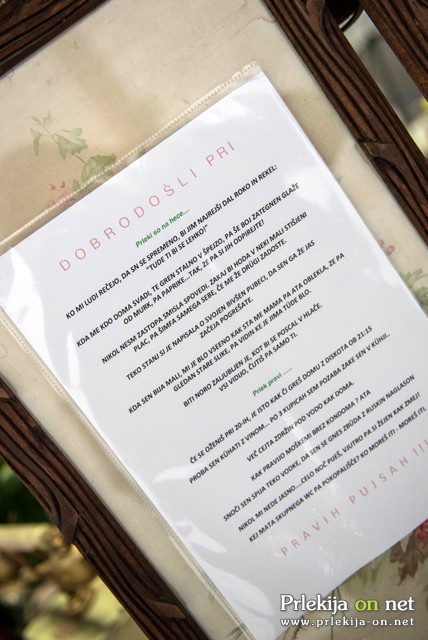 DOBRODOŠLI PRI
Prleki so na hece....
KO MI LUDI REČEJO, DA SN SE SPREMENO, BI JIM NAJREJŠI DAL ROKO IN REKEL:
"TUDE TI BI SE LEHKO!"
KDA ME KDO DOMA SVADI, TE GREN STALNO V ŠPEJZO, PA ŠE BOJ ZATEGNEN GLAŽE
OD MURK, PA PAPRIKE...TAK, ZE PA SI JIH ODPIREJTE!
NIKOL NESM ZASTOPA SMISLA SPOVEDI. ZAKAJ BI HODA V NEKI MALI STIŠJENI
PLAC, PA ŠIMFA SAMEGA SEBE, ČE ME ŽE DRÜGI ZADOSTE.
TEKO STANJ SI JE NAPISALA O SVOJEN BIVŠEN PUBECI, DA SEN GA ŽE JAS
ZAČEJA POGREŠATE.
KDA SEN BIJA MALI, MI JE BLO VSEENO KAK STA ME MAMA PA ATA OBLEKLA, ZE PA
GLEDAN STARE SLIKE, PA VIDIN KE JE JIMA TÜDE BLO.
BITI NORO ZALJUBLJEN JE, KOT BI SE POSCAL V HLAČE.
VSI VIDIJO, ČUTIŠ PA SAMO TI.
Prlek pravi ....
ČE SE OŽENIŠ PRI 20-IH, JE ISTO KAK ČI GREŠ DOMU Z DISKOTA OB 21:15
PROBA SEN KÜHATI Z VINOM... PO 3 KUPICAH SEM POZABA ZAKE SEN V KÜHJI..
VEČ CEITA ZDRŽIN POD VODO KAK DOMA.
KAK PRAVIJO MOŠKEMI BREZ KONDOMA ? ATA
SNOČI SEN SPIJA TEKO VODKE, DA SEN SE GNES ZBÜDA Z RUSKEN NAGLASON
NIKOL MI NEDE JASNO....CELO NOČ PIJEŠ, VJUTRO PA SI ŽEJEN KAK ZMEJ!
KEJ MATA SKUPNEGA WC PA POKOPALIŠČE? KO MOREŠ ITI - MOREŠ ITI.
PRAVIH PUJSAH !!!
Prlekija on net
www.prlekija-on.net